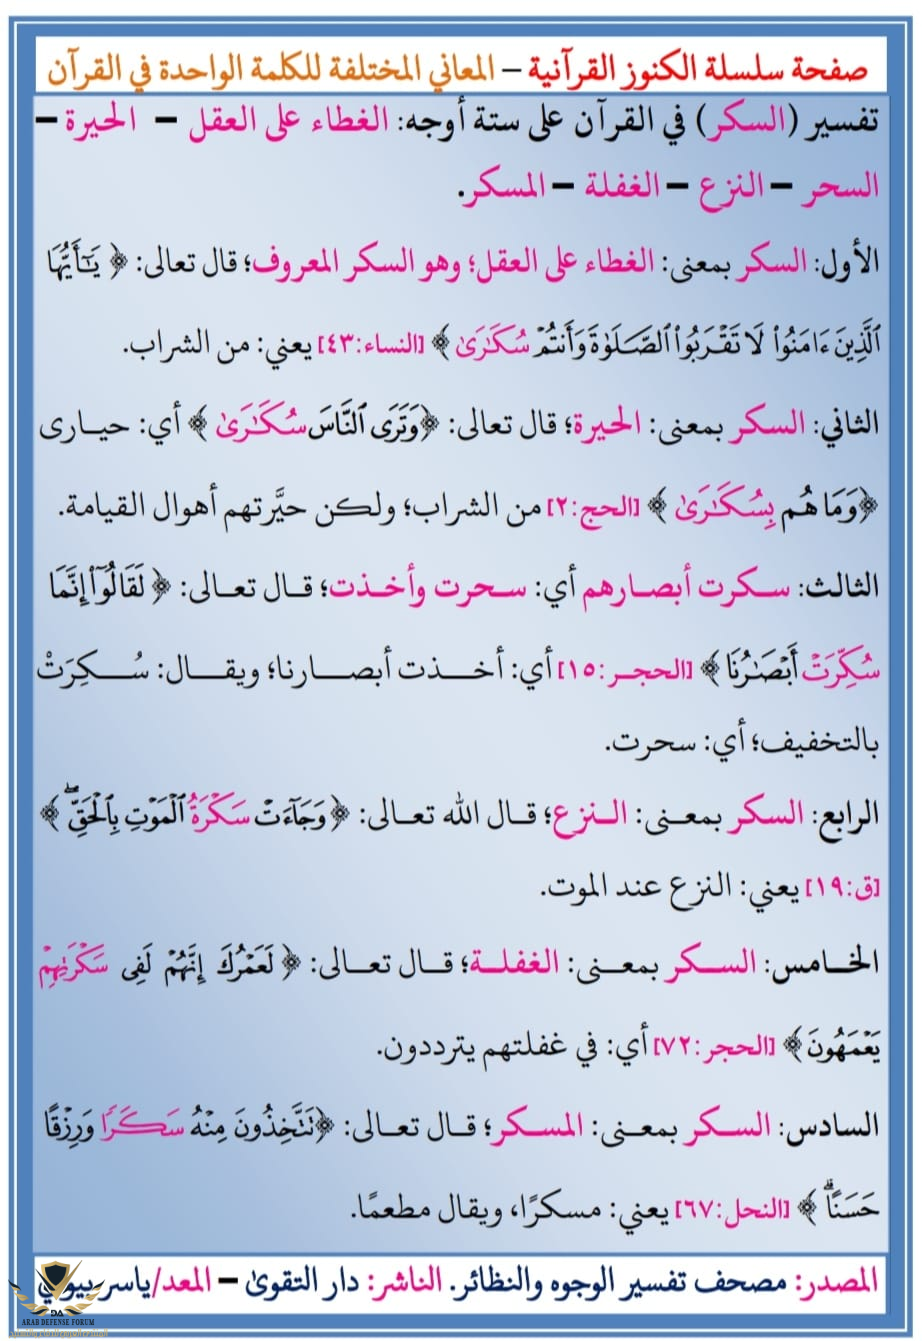 صفحة سلسلة الكنوز القرآنية – المعاني المختلفة للكلمة الواحدة في القرآن
تفسير (السكر) في القرآن على ستة أوجه: الغطاء على العقل – الحيرة –
السحر – النزع – الغفلة – المسكر.
الأول: السكر بمعنى: الغطاء على العقل؛ وهو السكر المعروف؛ قال تعالى: ﴿ يَـٰٓأَيُّهَا
ٱلَّذِينَ ءَامَنُوا۟ لَا تَقْرَبُوا۟ ٱلصَّلَوٰةَ وَأَنتُمْ سُكَـٰرَىٰ ﴾ [النساء:٤٣] يعني: من الشراب.
الثاني: السكر بمعنى: الحيرة؛ قال تعالى: ﴿وَتَرَى ٱلنَّاسَ سُكَـٰرَىٰ ﴾ أي: حيـارى
﴿وَمَا هُم بِسُكَـٰرَىٰ ﴾ [الحج:٢] من الشراب؛ ولكن حيَّرتهم أهوال القيامة.
الثالث: سـكرت أبصـارهم أي: سـحرت وأخـذت؛ قـال تعـالى: ﴿ لَقَالُوٓا۟ إِنَّمَا
سُكِّرَتْ أَبْصَـٰرُنَا ﴾ [الحجـر:١٥] أي: أخـذت أبصـارنا؛ ويقـال: سُـكِرَتْ
بالتخفيف؛ أي: سحرت.
الرابع: السكر بمعـنى: الـنزع؛ قـال الله تعـالى: ﴿ وَجَآءَتْ سَكْرَةُ ٱلْمَوْتِ بِٱلْحَقِّ ۖ ﴾
[ق:١٩] يعني: النزع عند الموت.
الخـامس: السـكر بمعـنى: الغفلـة؛ قـال تعـالى: ﴿ لَعَمْرُكَ إِنَّهُمْ لَفِى سَكْرَتِهِمْ
يَعْمَهُونَ ﴾ [الحجر:٧٢] أي: في غفلتهم يترددون.
السادس: السـكر بمعـنى: المسـكر؛ قـال تعـالى: ﴿تَتَّخِذُونَ مِنْهُ سَكَرًا وَرِزْقًا
حَسَنًا ۗ ﴾ [النحل:٦٧] يعني: مسكرًا، ويقال مطعمًا.
المصدر: مصحف تفسير الوجوه والنظائر. الناشر: دار التقوىٰ – المعد/ياسر بيومي
DA
ARAB DEFENSE FORUM